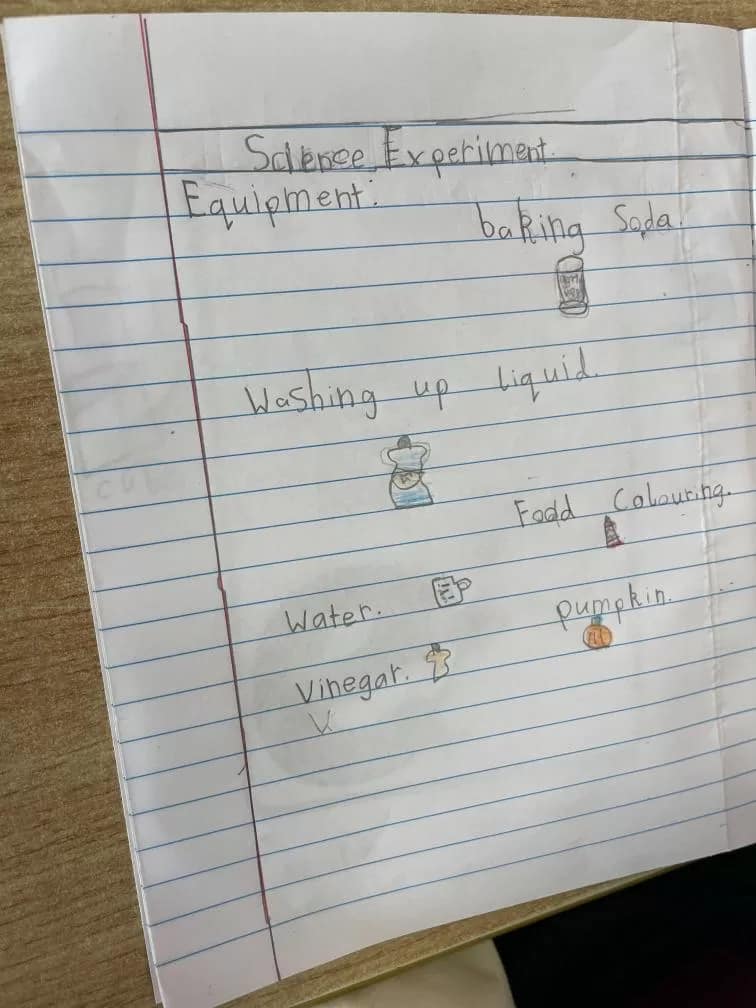 Science Experiment.
Equipment:
baking Soda.
Washing up liquid.
Food Colouring.
Water.
pumpkin.
Vinegar.
V